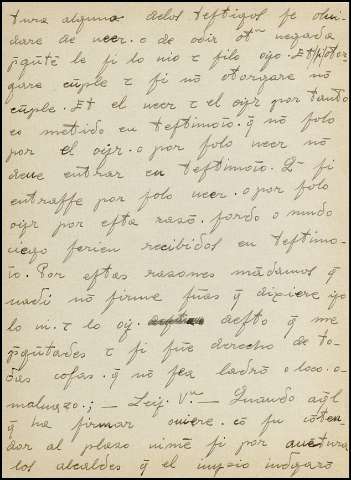 tura alguno delos testigos se olui-
dare de ueer. e de odir otᵐ negada
p̃gũte le si lo uio e silo oyo. Et/ſ/otor-
gare cũple e si nõ otorgare nõ
cũple. Et el ueer e el oyr por tanto
es metido en testimoĩo. q̃ nõ solo
por el oyr. o por solo ueer nõ
deue entrar en testimoĩo. Q̃ si
entrasse por solo ueer. o por solo
oyr por esta razõ. sordo o mudo
ciego serien recibidos en testimo-
ĩo. Por estas razones mãdamos q̃
nadi nõ firme fũas q̃ dixiere yo
lo ui. e lo oy. desto q̃ me
p̃gũtades e si fũe derecho de to-
das cosas. q̃ nõ sea ladrõ o loco. o
maluazo.; — Leij. Vᵃ — Quando aq̃l
q̃ ha firmar ouiere. cõ su cõten-
dor al plazo uinie si por auẽtura
los alcaldes q̃ el iuyzio iudgarõ